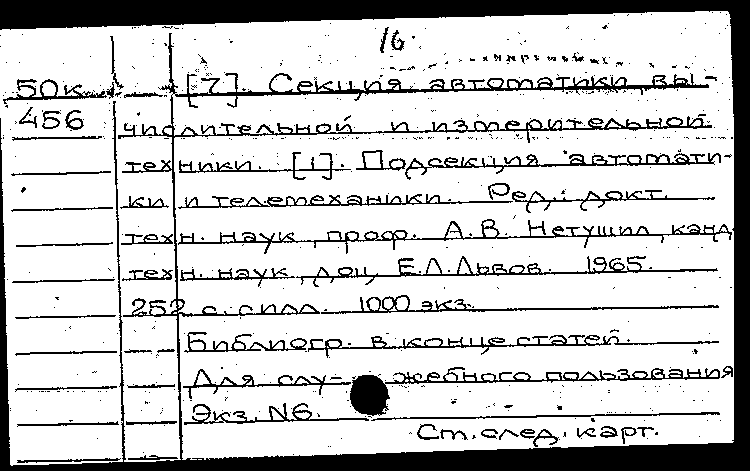 16.
50к [7]. Секция автоматики, вы-
456 числительной и измерительной
техники. [1]. Подсекция автомати-
ки и телемеханики. Ред.: докт.
техн. наук, проф. А.В. Нетушил, канд.
техн. наук, доц. Е.Л.Львов. 1965.
252 с. с илл. 1000 экз.
Библиогр. в конце статей.
Для слу- жебного пользования
Экз. N6.
Ст. след. карт.